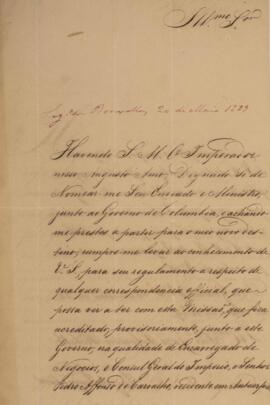 Illmo Snr
Bruxellas 20 de Maio 1829
Havendo S. M. O Imperador
meu Augusto Amo, Dignado-se de
Nomear-me Seu Enviado e Ministro,
junto ao Governo de Columbia, e achando
me prestes a partir para o meu novo des
tino, cumpre-me levar ao conhecimento de
V. S., para seu regulamento a respeito de
qualquer correspondencia official, que
possa vir a ter com esta Missaõ, que fica
acreditado, provisoriamente, junto a este
Governo, na qualidade de Encarregado de
Negocios, e Consul Geral do Imperio, o Senhor
Pedro Affonso de Carvalho, residente em Antuerpia